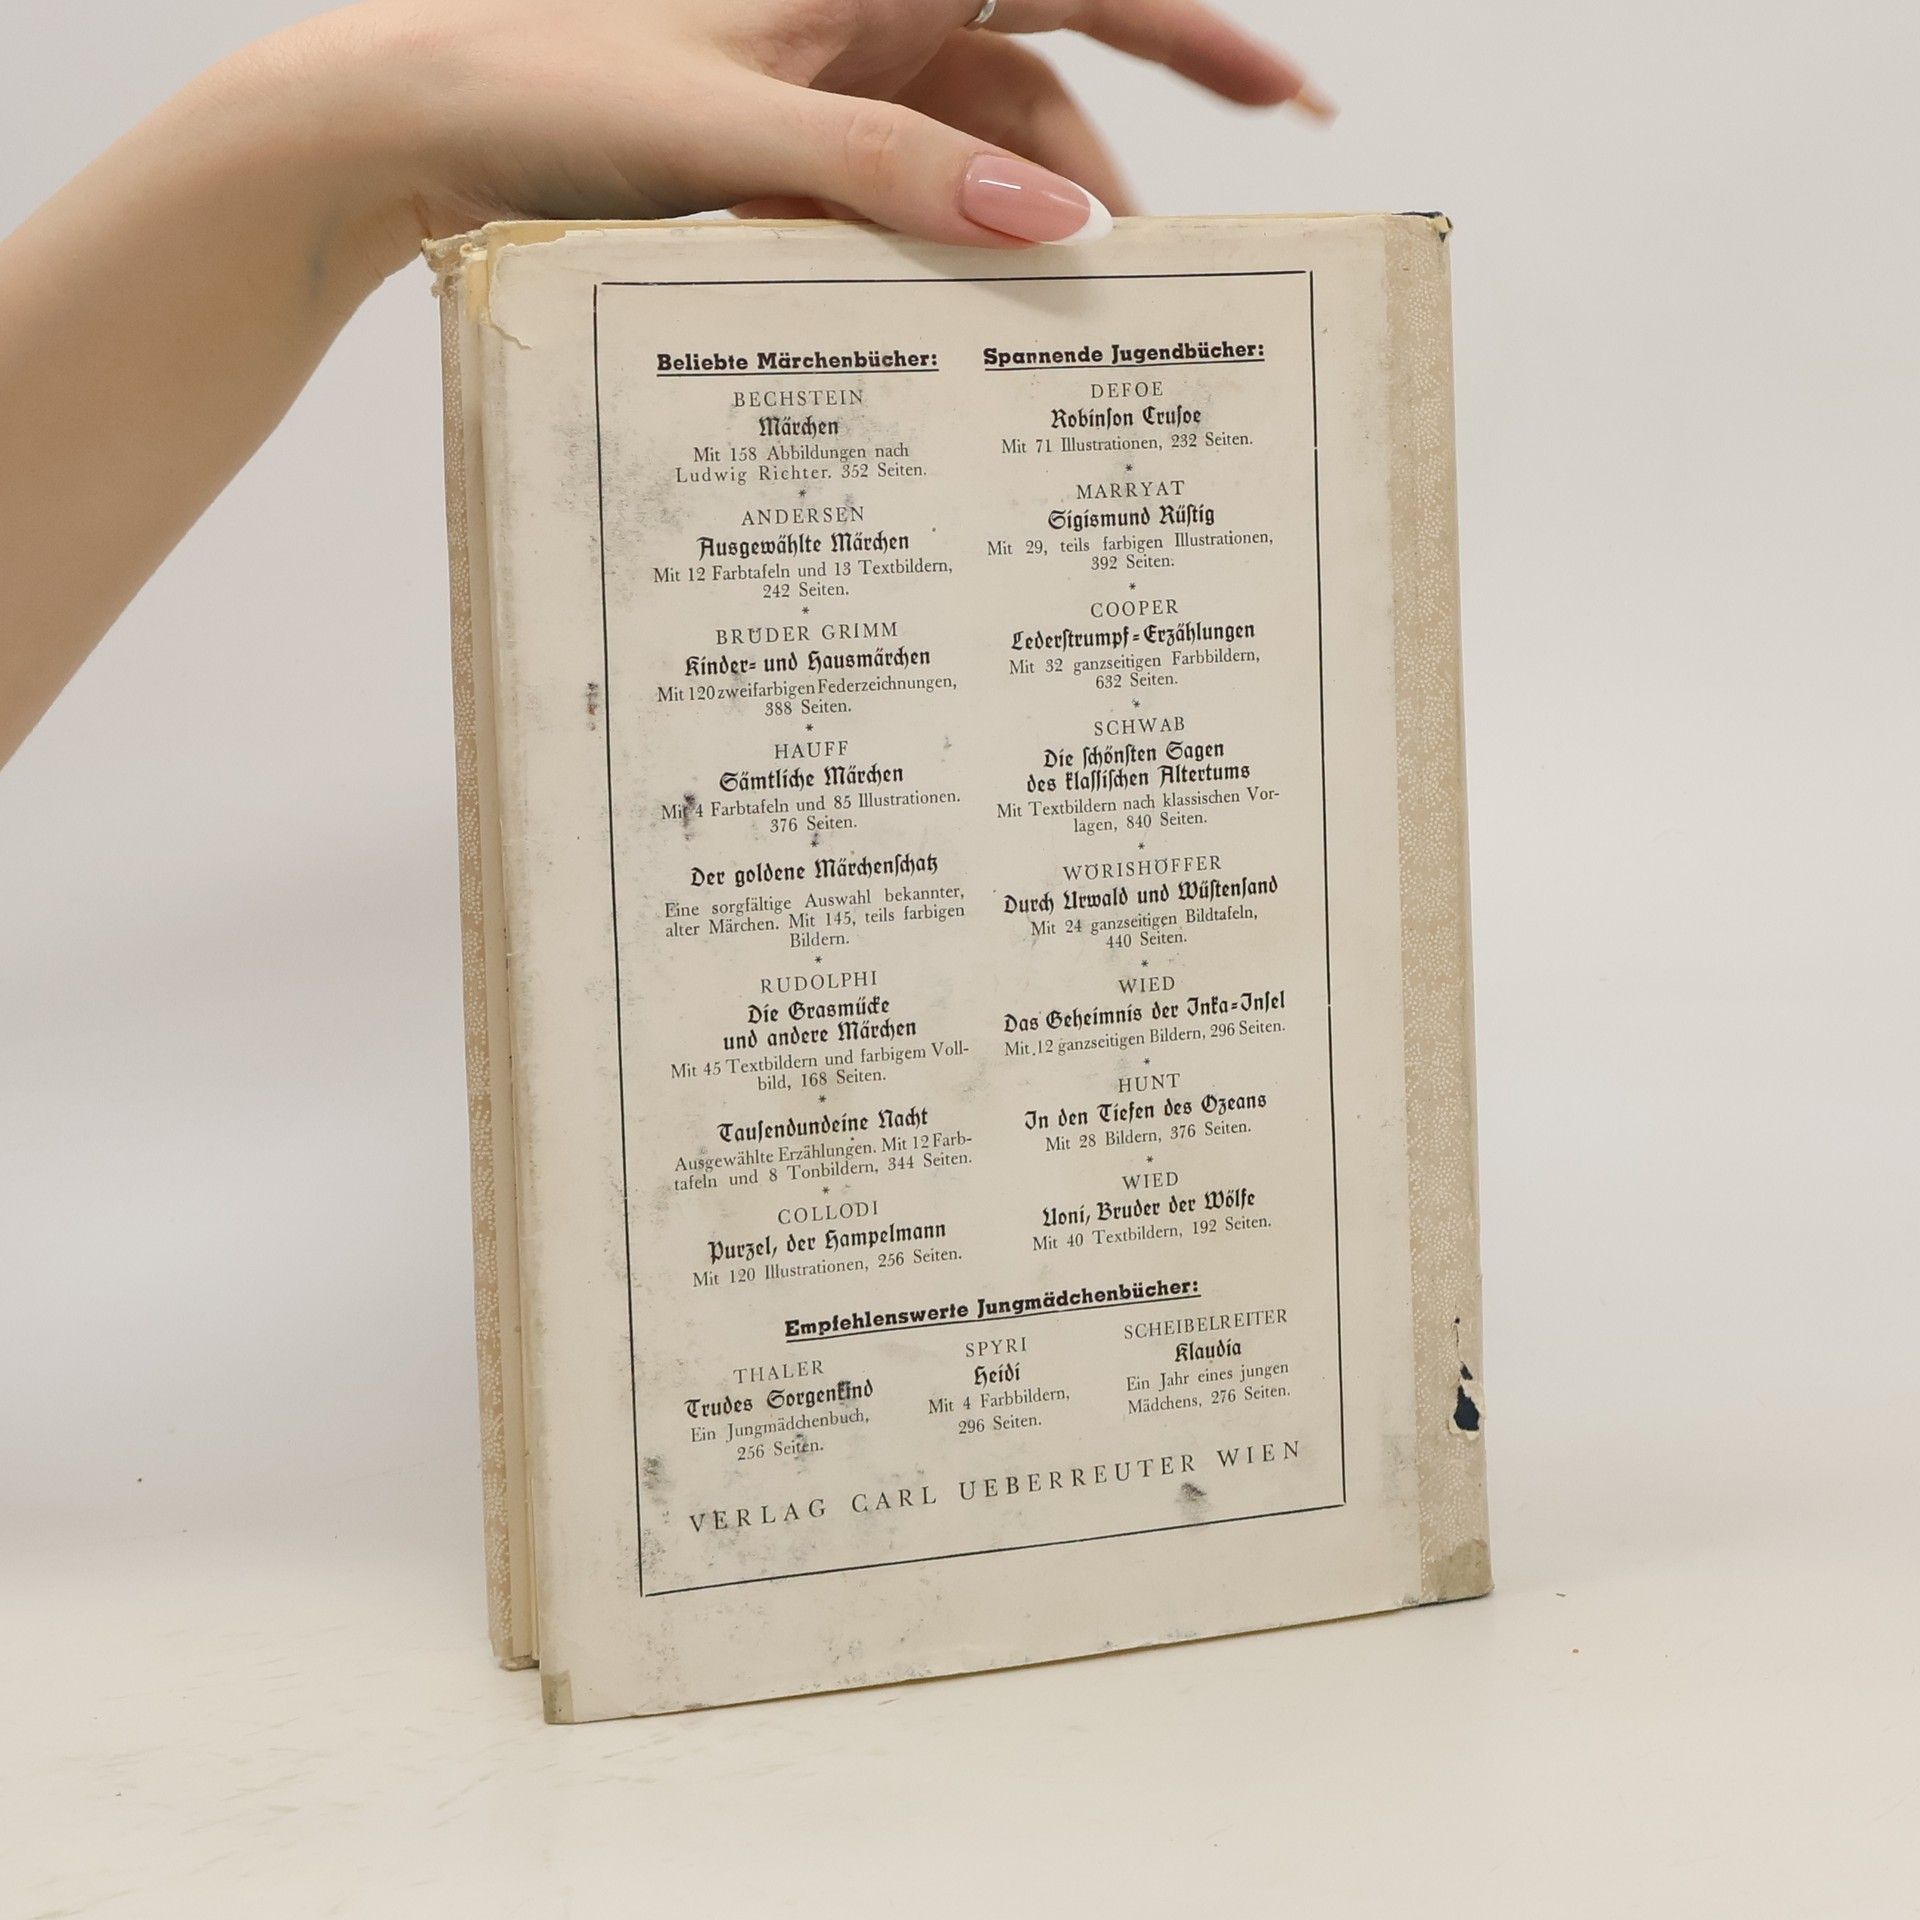 Beliebte Märchenbücher:
BECHSTEIN
Märchen
Mit 158 Abbildungen nach
Ludwig Richter. 352 Seiten.
*
ANDERSEN
Ausgewählte Märchen
Mit 12 Farbtafeln und 13 Textbildern,
242 Seiten.
*
BRÜDER GRIMM
Kinder- und Hausmärchen
Mit 120 zweifarbigen Federzeichnungen,
388 Seiten.
*
HAUFF
Sämtliche Märchen
Mit 4 Farbtafeln und 85 Illustrationen.
376 Seiten.
*
Der goldene Märchenſchatz
Eine sorgfältige Auswahl bekannter,
alter Märchen. Mit 145, teils farbigen
Bildern.
*
RUDOLPHI
Die Grasmücke
und andere Märchen
Mit 45 Textbildern und farbigem Voll-
bild, 168 Seiten.
*
Tauſendundeine Nacht
Ausgewählte Erzählungen. Mit 12 Farb-
tafeln und 8 Tonbildern, 344 Seiten.
*
COLLODI
Purzel, der Hampelmann
Mit 120 Illustrationen, 256 Seiten.
Spannende Jugendbücher:
DEFOE
Robinſon Cruſoe
Mit 71 Illustrationen, 232 Seiten.
*
MARRYAT
Sigismund Rüſtig
Mit 29, teils farbigen Illustrationen,
392 Seiten.
*
COOPER
Lederſtrumpf-Erzählungen
Mit 32 ganzseitigen Farbbildern,
632 Seiten.
*
SCHWAB
Die ſchönſten Sagen
des klaſſiſchen Altertums
Mit Textbildern nach klassischen Vor-
lagen, 840 Seiten.
*
WÖRISHÖFFER
Durch Urwald und Wüſtenſand
Mit 24 ganzseitigen Bildtafeln,
440 Seiten.
*
WIED
Das Geheimnis der Inka-Inſel
Mit 12 ganzseitigen Bildern, 296 Seiten.
*
HUNT
In den Tiefen des Ozeans
Mit 28 Bildern, 376 Seiten.
*
WIED
Uoni, Bruder der Wölfe
Mit 40 Textbildern, 192 Seiten.
Empfehlenswerte Jungmädchenbücher:
THALER
Trudes Sorgenkind
Ein Jungmädchenbuch,
256 Seiten.
SPYRI
Heidi
Mit 4 Farbbildern,
296 Seiten.
SCHEIBELREITER
Klaudia
Ein Jahr eines jungen
Mädchens, 276 Seiten.
VERLAG CARL UEBERREUTER WIEN